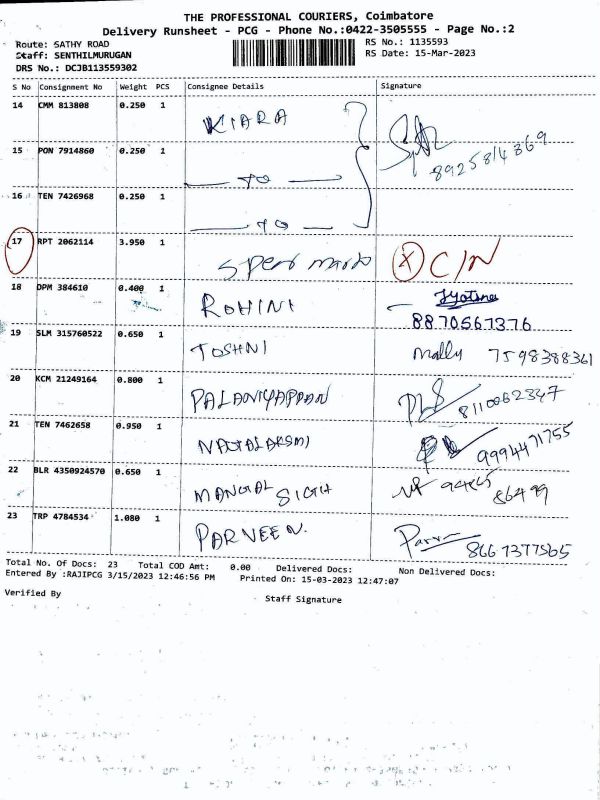 THE PROFESSIONAL COURIERS, Coimbatore
Delivery Runsheet - PCG - Phone No.:0422-3505555 - Page No.:2
Route: SATHY ROAD
Staff: SENTHILMURUGAN
DRS No.: DCJB113559302
RS No.: 1135593
RS Date: 15-Mar-2023
S No Consignment No Weight PCS Consignee Details Signature
14 CMM 813808 0.250 1 KIARA
8925814369
15 PON 7914860 0.250 1
16 TEN 7426968 0.250 1
17 RPT 2062114 3.950 1 X C/N
18 DPM 384610 0.400 1 ROHINI
8870567376
19 SLM 315760522 0.650 1 TOSHNI Mally 7598388361
20 KCM 21249164 0.800 1 PALANIYAPPAN 8110062347
21 TEN 7462658 0.950 1 9994471755
22 BLR 4350924570 0.650 1 MANGAL SIGH
86499
23 TRP 4784534 1.080 1 PARVEEN.
8667377565
Total No. Of Docs: 23 Total COD Amt: 0.00 Delivered Docs: Non Delivered Docs:
Entered By :RAJIPCG 3/15/2023 12:46:56 PM Printed On: 15-03-2023 12:47:07
Verified By
Staff Signature